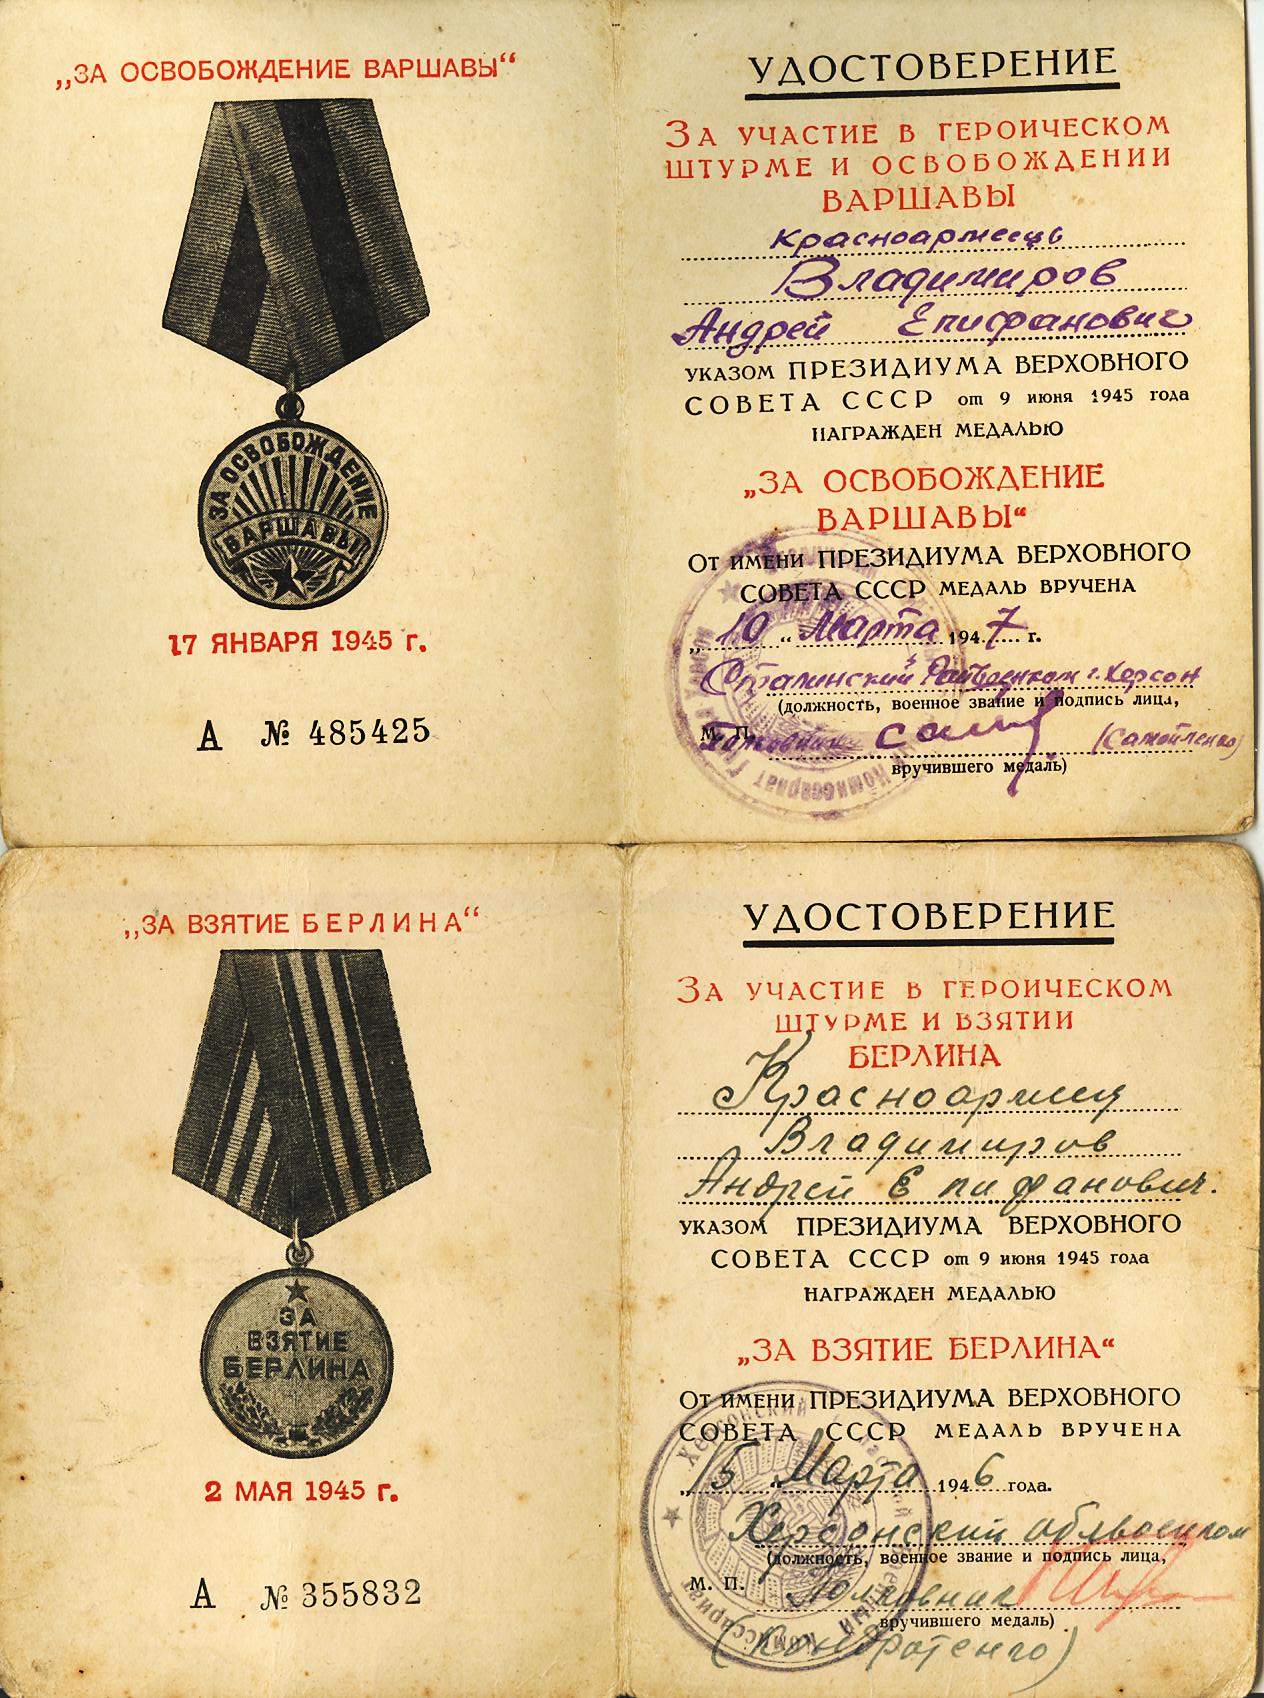 „ЗА ОСВОБОЖДЕНИЕ ВАРШАВЫ“
ЗА ОСВОБОЖДЕНИЕ
ВАРШАВЫ
17 ЯНВАРЯ 1945 г.
А № 485425
УДОСТОВЕРЕНИЕ
За участие в героическом
штурме и освобождении
ВАРШАВЫ
Красноармеець
Владимиров
Андрей Епифанович
указом ПРЕЗИДИУМА ВЕРХОВНОГО
СОВЕТА СССР от 9 июня 1945 года
НАГРАЖДЕН МЕДАЛЬЮ
„ЗА ОСВОБОЖДЕНИЕ
ВАРШАВЫ“
От имени ПРЕЗИДИУМА ВЕРХОВНОГО
СОВЕТА СССР МЕДАЛЬ ВРУЧЕНА
„10“ Марта 1947 г.
Сталинский Райвоенком г. Херсон
(должность, военное звание и подпись лица,
М. П.
(Самойленко)
вручившего медаль)
„ЗА ВЗЯТИЕ БЕРЛИНА“
ЗА
ВЗЯТИЕ
БЕРЛИНА
2 МАЯ 1945 г.
А № 355832
УДОСТОВЕРЕНИЕ
За участие в героическом
штурме и взятии
БЕРЛИНА
Красноармеец
Владимиров
Андрей Епифанович.
указом ПРЕЗИДИУМА ВЕРХОВНОГО
СОВЕТА СССР от 9 июня 1945 года
НАГРАЖДЕН МЕДАЛЬЮ
„ЗА ВЗЯТИЕ БЕРЛИНА“
От имени ПРЕЗИДИУМА ВЕРХОВНОГО
СОВЕТА СССР МЕДАЛЬ ВРУЧЕНА
„15 Марта 1946 года.
Херсонский облвоенком
(должность, военное звание и подпись лица,
М. П. Полковник
вручившего медаль)
(Кондратенко)